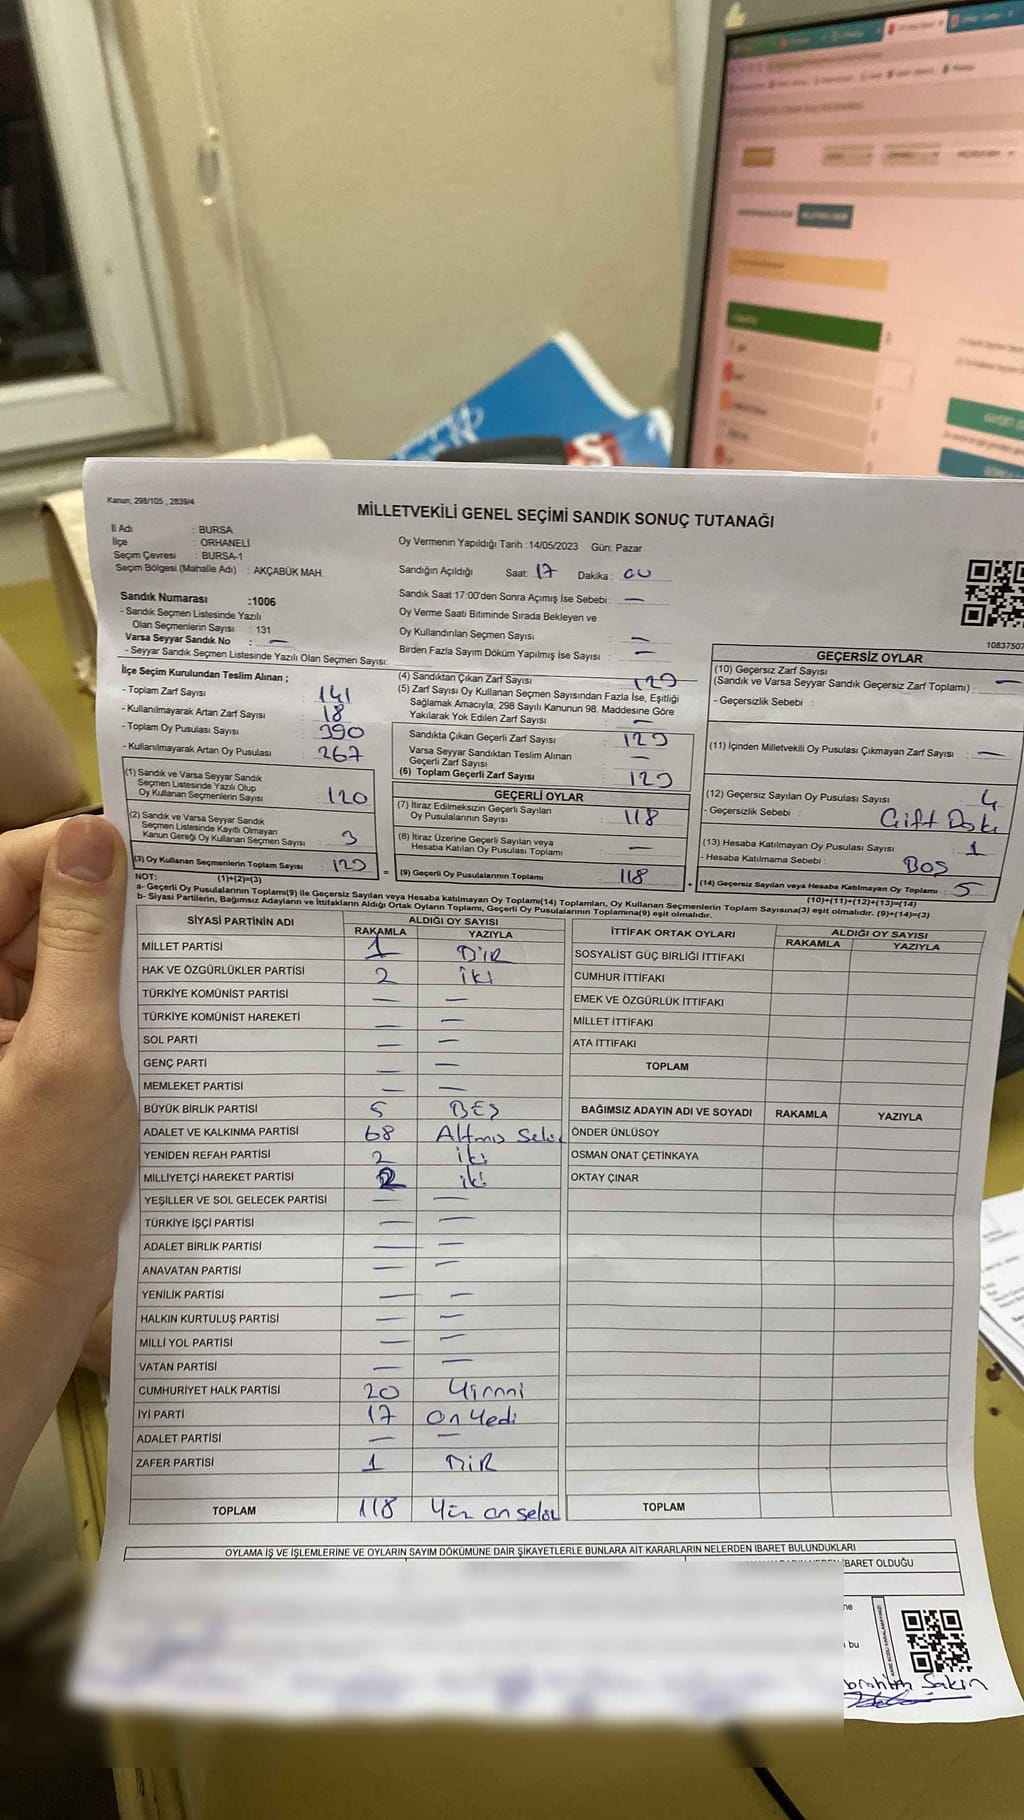 Kanun; 298/105 , 2839/4
MİLLETVEKİLİ GENEL SEÇİMİ SANDIK SONUÇ TUTANAĞI
İl Adı : BURSA
İlçe : ORHANELİ
Seçim Çevresi : BURSA-1
Seçim Bölgesi (Mahalle Adı) : AKÇABÜK MAH.
Sandık Numarası :1006
- Sandık Seçmen Listesinde Yazılı
Olan Seçmenlerin Sayısı : 131
Varsa Seyyar Sandık No : —
- Seyyar Sandık Seçmen Listesinde Yazılı Olan Seçmen Sayısı:
Oy Vermenin Yapıldığı Tarih :14/05/2023 Gün: Pazar
Sandığın Açıldığı Saat: 17 Dakika : 00
Sandık Saat 17:00'den Sonra Açımış İse Sebebi : —
Oy Verme Saati Bitiminde Sırada Bekleyen ve
Oy Kullandırılan Seçmen Sayısı : —
Birden Fazla Sayım Döküm Yapılmış İse Sayısı : —
10837507
İlçe Seçim Kurulundan Teslim Alınan ;
- Toplam Zarf Sayısı : 141
- Kullanılmayarak Artan Zarf Sayısı : 18
- Toplam Oy Pusulası Sayısı : 390
- Kullanılmayarak Artan Oy Pusulası : 267
(1) Sandık ve Varsa Seyyar Sandık
Seçmen Listesinde Yazılı Olup
Oy Kullanan Seçmenlerin Sayısı : 120
(2) Sandık ve Varsa Seyyar Sandık
Seçmen Listesinde Kayıtlı Olmayan
Kanun Gereği Oy Kullanan Seçmen Sayısı : 3
(3) Oy Kullanan Seçmenlerin Toplam Sayısı : 123
(1)+(2)=(3)
(4) Sandıktan Çıkan Zarf Sayısı : 123
(5) Zarf Sayısı Oy Kullanan Seçmen Sayısından Fazla İse, Eşitliği
Sağlamak Amacıyla, 298 Sayılı Kanunun 98. Maddesine Göre
Yakılarak Yok Edilen Zarf Sayısı : —
Sandıkta Çıkan Geçerli Zarf Sayısı : 123
Varsa Seyyar Sandıktan Teslim Alınan
Geçerli Zarf Sayısı : —
(6) Toplam Geçerli Zarf Sayısı : 123
GEÇERLİ OYLAR
(7) İtiraz Edilmeksizin Geçerli Sayılan
Oy Pusulalarının Sayısı : 118
(8) İtiraz Üzerine Geçerli Sayılan veya
Hesaba Katılan Oy Pusulası Toplamı : —
(9) Geçerli Oy Pusulalarının Toplamı : 118
GEÇERSİZ OYLAR
(10) Geçersiz Zarf Sayısı
(Sandık ve Varsa Seyyar Sandık Geçersiz Zarf Toplamı) : —
- Geçersizlik Sebebi :
(11) İçinden Milletvekili Oy Pusulası Çıkmayan Zarf Sayısı : —
(12) Geçersiz Sayılan Oy Pusulası Sayısı : 4
- Geçersizlik Sebebi : Çift Baskı
(13) Hesaba Katılmayan Oy Pusulası Sayısı : 1
- Hesaba Katılmama Sebebi : BOŞ
(14) Geçersiz Sayılan veya Hesaba Katılmayan Oy Toplamı : 5
(10)+(11)+(12)+(13)=(14)
NOT:
a- Geçerli Oy Pusulalarının Toplamı(9) ile Geçersiz Sayılan veya Hesaba Katılmayan Oy Toplamı(14) Toplamları, Oy Kullanan Seçmenlerin Toplam Sayısına(3) eşit olmalıdır. (9)+(14)=(3)
b- Siyasi Partilerin, Bağımsız Adayların ve İttifakların Aldığı Ortak Oyların Toplamı, Geçerli Oy Pusulalarının Toplamına(9) eşit olmalıdır.
SİYASİ PARTİNİN ADI ALDIĞI OY SAYISI
RAKAMLA YAZIYLA
MİLLET PARTİSİ 1 BİR
HAK VE ÖZGÜRLÜKLER PARTİSİ 2 iki
TÜRKİYE KOMÜNİST PARTİSİ — —
TÜRKİYE KOMÜNİST HAREKETİ — —
SOL PARTİ — —
GENÇ PARTİ — —
MEMLEKET PARTİSİ — —
BÜYÜK BİRLİK PARTİSİ 5 BEŞ
ADALET VE KALKINMA PARTİSİ 68 Altmış Sekiz
YENİDEN REFAH PARTİSİ 2 iki
MİLLİYETÇİ HAREKET PARTİSİ 2 iki
YEŞİLLER VE SOL GELECEK PARTİSİ — —
TÜRKİYE İŞÇİ PARTİSİ — —
ADALET BİRLİK PARTİSİ — —
ANAVATAN PARTİSİ — —
YENİLİK PARTİSİ — —
HALKIN KURTULUŞ PARTİSİ — —
MİLLİ YOL PARTİSİ — —
VATAN PARTİSİ — —
CUMHURİYET HALK PARTİSİ 20 Yirmi
İYİ PARTİ 17 On Yedi
ADALET PARTİSİ — —
ZAFER PARTİSİ 1 BİR
TOPLAM 118 Yüz on sekiz
İTTİFAK ORTAK OYLARI ALDIĞI OY SAYISI
RAKAMLA YAZIYLA
SOSYALİST GÜÇ BİRLİĞİ İTTİFAKI
CUMHUR İTTİFAKI
EMEK VE ÖZGÜRLÜK İTTİFAKI
MİLLET İTTİFAKI
ATA İTTİFAKI
TOPLAM
BAĞIMSIZ ADAYIN ADI VE SOYADI RAKAMLA YAZIYLA
ÖNDER ÜNLÜSOY
OSMAN ONAT ÇETİNKAYA
OKTAY ÇINAR
TOPLAM
OYLAMA İŞ VE İŞLEMLERİNE VE OYLARIN SAYIM DÖKÜMÜNE DAİR ŞİKAYETLERLE BUNLARA AİT KARARLARIN NELERDEN İBARET BULUNDUKLARI
İBARET OLDUĞU
ne
bu
İbrahim Şakin